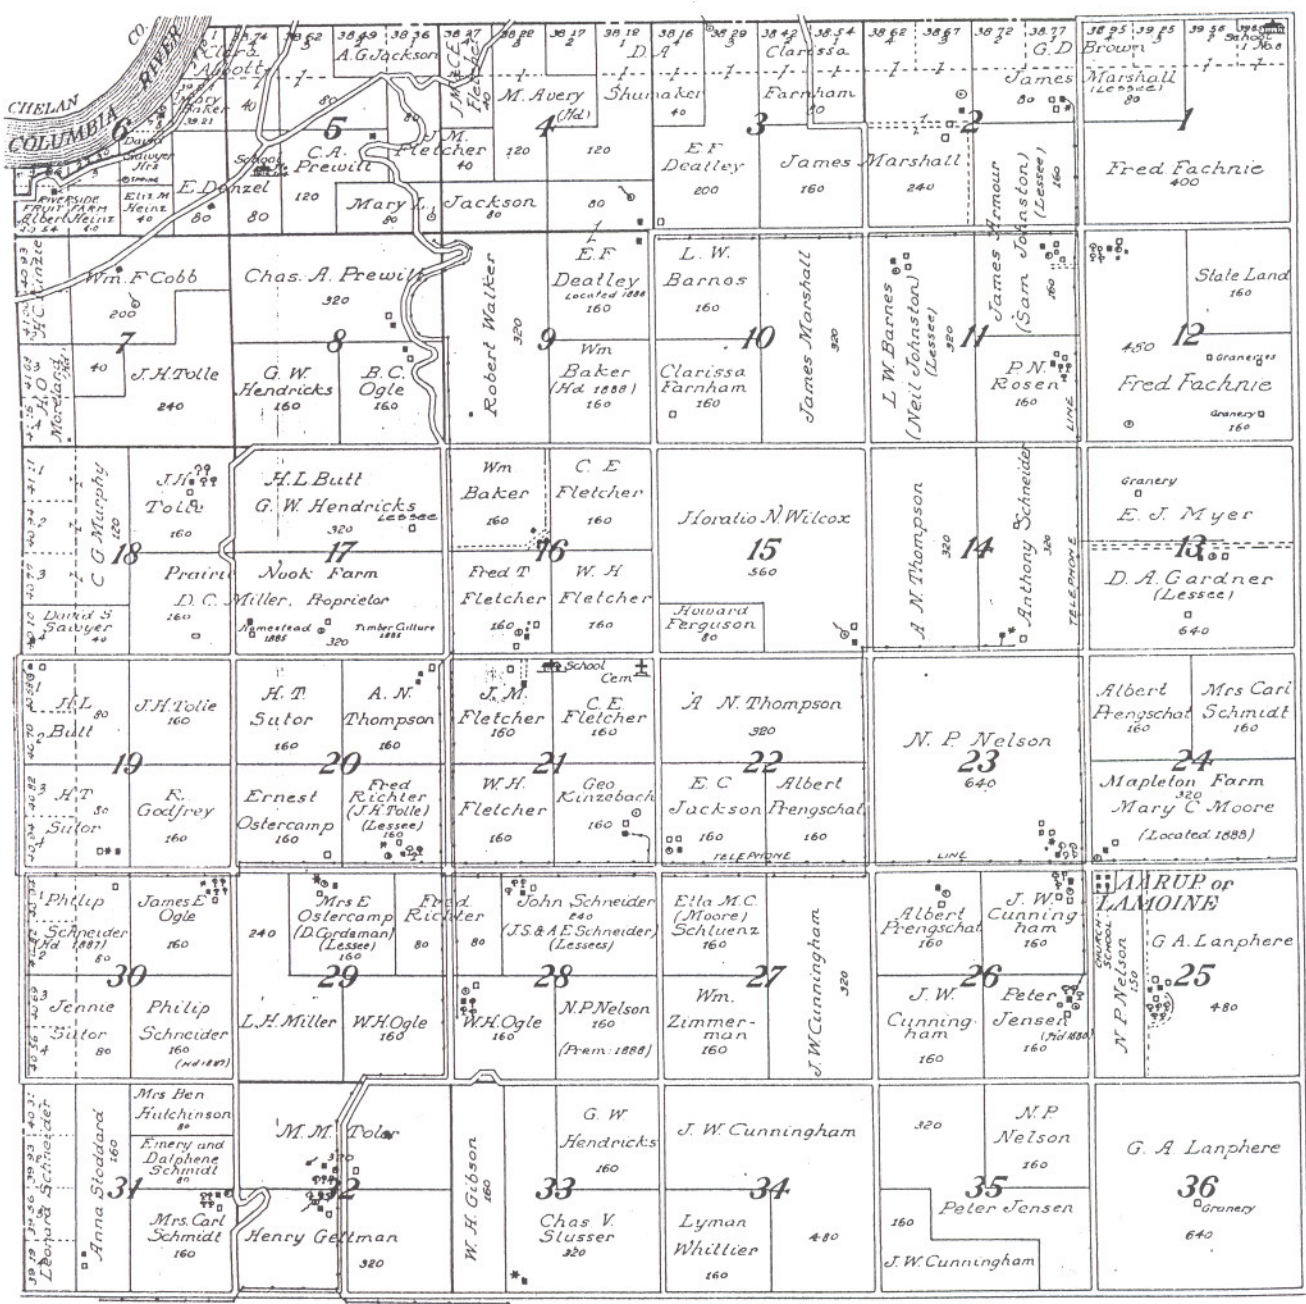 CO.
RIVER
CHELAN
COLUMBIA
6
Clara
Abbott
Mary
Baker
39.21
40
David
Sawyer
Hrs
SPRING
RIVERSIDE
FRUIT FARM
Albert Heinz
Eliz M
Heinz
40
38.74
38.62
38.49
38.36
A.G.Jackson
40
80
80
5
School
C.A.
Prewitt
120
E. Donzel
80
80
J.M.
Fletcher
40
Mary L. Jackson
80
80
38.27
38.22
38.17
38.12
J.M & C.E.
Fletcher
40
M. Avery
(Hd)
120
4
D A
Shumaker
40
120
80
38.16
38.29
38.42
38.54
Clarissa
Farnham
80
3
E F
Deatley
200
James Marshall
160
240
38.62
38.67
38.72
38.77
G. D. Brown
James Marshall
(Lessee)
80
80
2
James Armour
(Sam Johnston)
(Lessee)
160
160
38.95
39.25
39.56
School
No. 8
1
Fred Fachnie
400
H C Kinzie
Wm. F Cobb
200
7
40
J.H.Tolle
240
H O
Moreland
Chas. A. Prewitt
320
8
G. W.
Hendricks
160
B. C.
Ogle
160
Robert Walker
320
9
E. F.
Deatley
Located 1888
160
Wm
Baker
(Hd 1888)
160
L. W.
Barnes
160
10
Clarissa
Farnham
160
James Marshall
320
L W. Barnes
(Neil Johnston)
(Lessee)
320
11
P. N.
Rosen
160
LINE
State Land
160
12
480
Graneries
Fred Fachnie
Granery
160
C G Murphy
120
J.H.
Tolle
160
18
David S
Sawyer
40
H.L Butt
G. W. Hendricks
Lessee
320
17
Prairie Nook Farm
D. C. Miller, Proprietor
160
Homestead
1885
320
Timber Culture
1885
Wm
Baker
160
C. E
Fletcher
160
16
Fred T
Fletcher
160
W. H
Fletcher
160
Horatio N. Wilcox
15
560
Howard
Ferguson
80
A N. Thompson
320
14
Anthony Schneider
320
TELEPHONE
Granery
E. J. Myer
13
D. A. Gardner
(Lessee)
640
H.L
Butt
80
J.H.Tolle
160
19
H T
Sutor
80
R.
Godfrey
160
H. T.
Sutor
160
A. N.
Thompson
160
20
Ernest
Ostercamp
160
Fred
Richter
(J.H.Tolle)
(Lessee)
160
School
Cem
J. M.
Fletcher
160
C. E.
Fletcher
160
21
W. H.
Fletcher
160
Geo
Kinzebach
160
A N. Thompson
320
22
E. C
Jackson
160
Albert
Prengschat
160
TELEPHONE LINE
N. P. Nelson
23
640
Albert
Prengschat
160
Mrs Carl
Schmidt
160
24
Mapleton Farm
320
Mary C Moore
(Located 1888)
Philip
Schneider
(Hd 1887)
80
James E
Ogle
160
30
Jennie
Sutor
80
Philip
Schneider
160
(Hd 1887)
240
Mrs E
Ostercamp
(D. Cordeman)
(Lessee)
160
Fred
Richter
80
80
29
L. H. Miller
W. H. Ogle
160
John Schneider
240
(J.S. & A E Schneider)
(Lessees)
28
W. H. Ogle
160
N. P. Nelson
160
(Prem. 1888)
Etta M.C.
(Moore)
Schluenz
160
27
Wm.
Zimmer-
man
160
J. W. Cunningham
320
Albert
Prengschat
160
J. W.
Cunning
ham
160
26
J. W.
Cunning-
ham
160
Peter
Jensen
(Hd 1888)
160
AARUP or
LAMOINE
CHURCH
SCHOOL
N P. Nelson
150
G A. Lanphere
25
480
Leonard Schneider
Anna Stoddard
160
31
Mrs Ben
Hutchinson
80
Emery and
Dalphene
Schmidt
80
Mrs. Carl
Schmidt
160
M. M. Toler
320
32
Henry Gettman
320
W. H. Gibson
160
G. W
Hendricks
160
33
Chas V.
Slusser
320
J. W. Cunningham
34
Lyman
Whittier
160
480
320
N. P.
Nelson
160
35
Peter Jensen
160
J. W. Cunningham
G. A. Lanphere
36
Granery
640